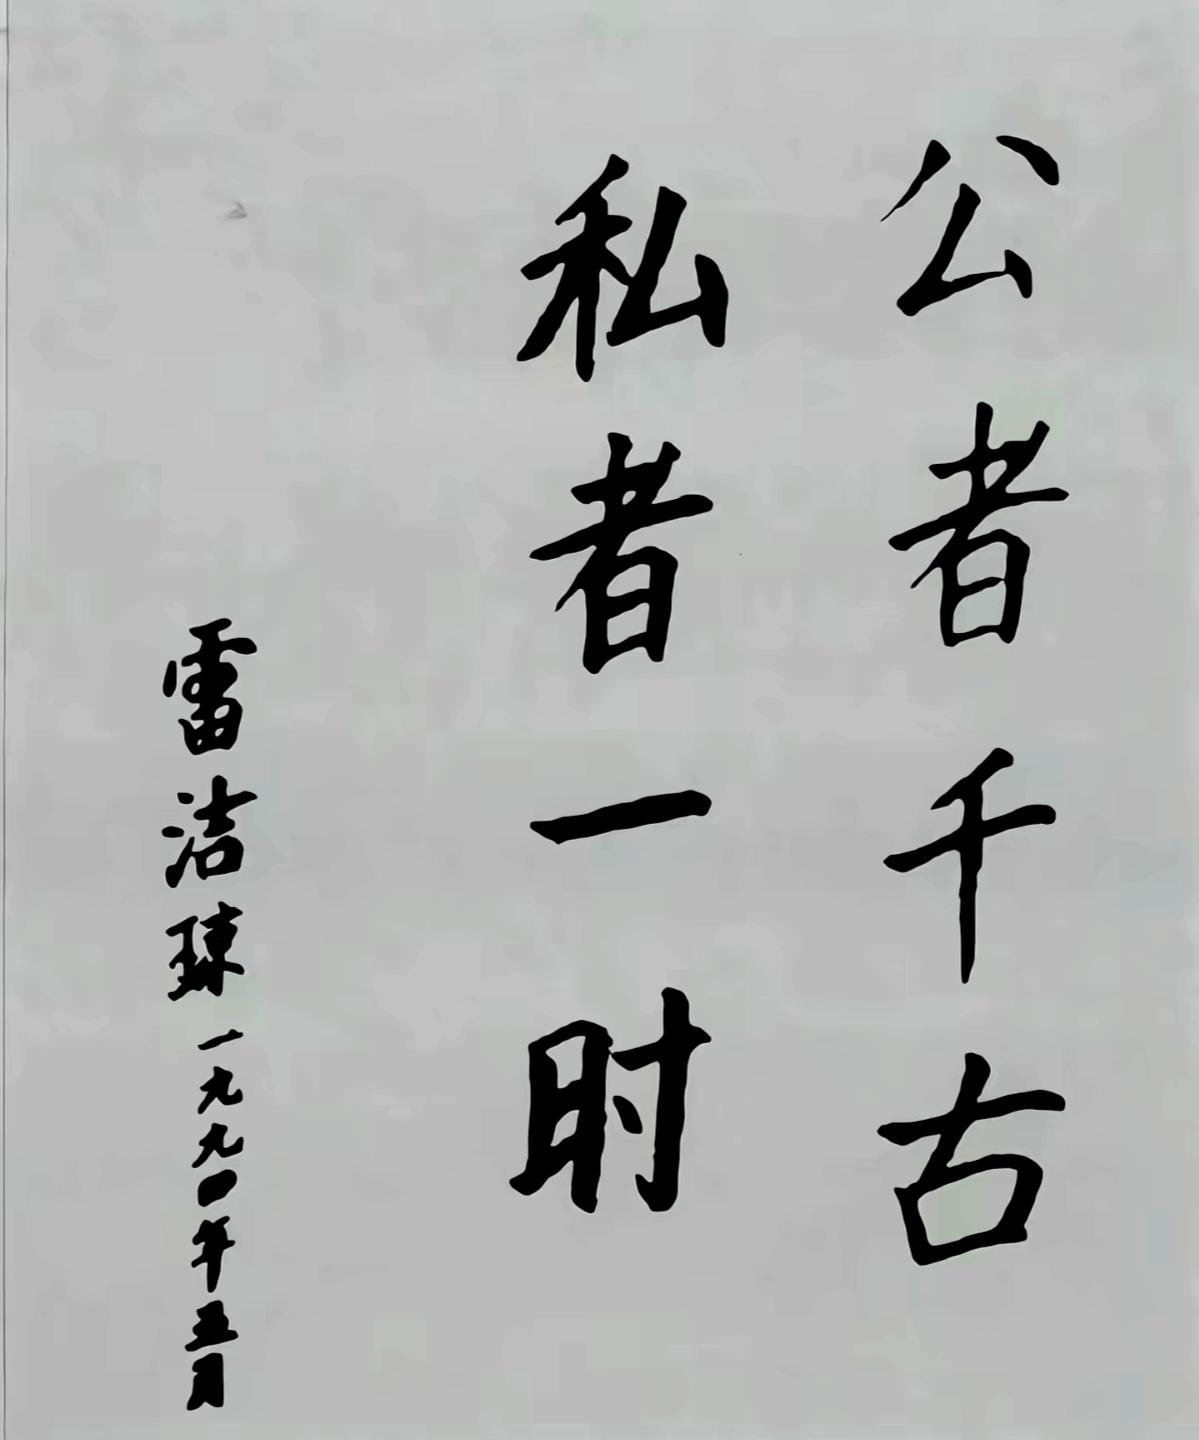 公者千古
私者一时
雷洁琼 一九九〇年五月